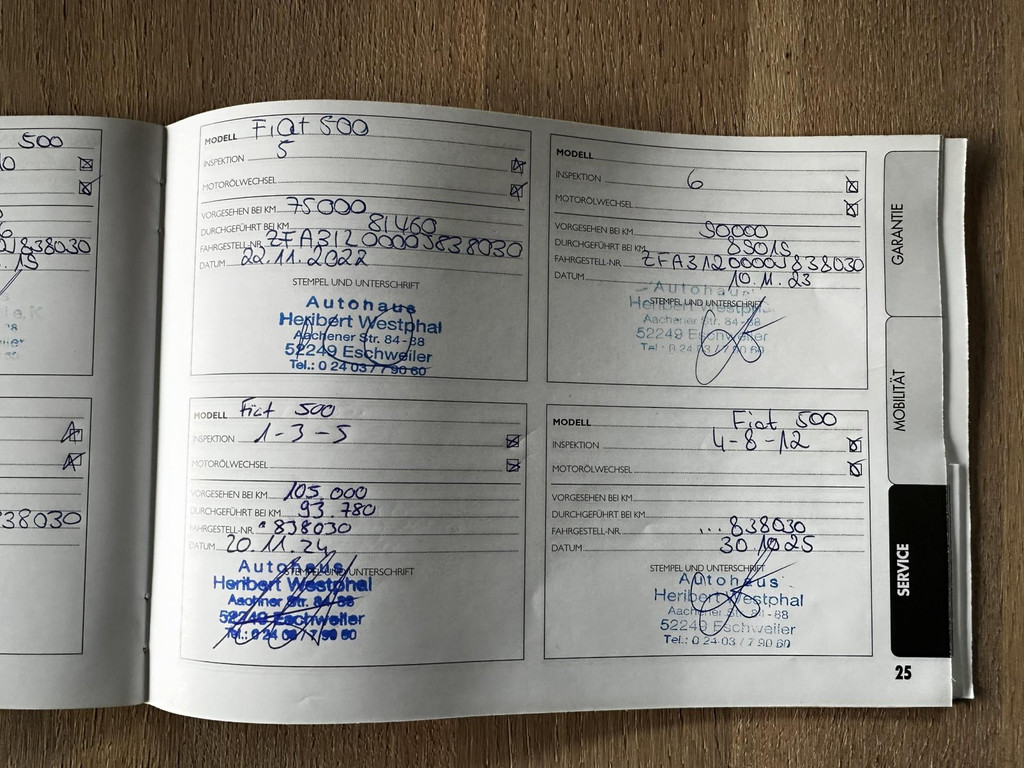 500
838030
.15
838030
MODELL Fiat 500
INSPEKTION 5
MOTORÖLWECHSEL
VORGESEHEN BEI KM 75000
DURCHGEFÜHRT BEI KM 81460
FAHRGESTELL-NR. ZFA3120000J838030
DATUM 22.11.2022
STEMPEL UND UNTERSCHRIFT
Autohaus
Heribert Westphal
Aachener Str. 84-88
52249 Eschweiler
Tel.: 0 24 03 / 7 90 60
MODELL
INSPEKTION 6
MOTORÖLWECHSEL
VORGESEHEN BEI KM 90000
DURCHGEFÜHRT BEI KM
FAHRGESTELL-NR. ZFA3120000J838030
DATUM 10.11.23
STEMPEL UND UNTERSCHRIFT
Autohaus
Heribert Westphal
Aachener Str. 84-88
52249 Eschweiler
Tel.: 0 24 03 / 7 90 60
MODELL Fiat 500
INSPEKTION 1-3-5
MOTORÖLWECHSEL
VORGESEHEN BEI KM 105.000
DURCHGEFÜHRT BEI KM 93.780
FAHRGESTELL-NR. 838030
DATUM 20.11.24
STEMPEL UND UNTERSCHRIFT
Autohaus
Heribert Westphal
Aachener Str. 84-88
52249 Eschweiler
Tel.: 0 24 03 / 7 90 60
MODELL Fiat 500
INSPEKTION 4-8-12
MOTORÖLWECHSEL
VORGESEHEN BEI KM
DURCHGEFÜHRT BEI KM
FAHRGESTELL-NR. ...838030
DATUM 30.10.25
STEMPEL UND UNTERSCHRIFT
Autohaus
Heribert Westphal
Aachener Str. 84-88
52249 Eschweiler
Tel.: 0 24 03 / 7 90 60
GARANTIE
MOBILITÄT
SERVICE
25